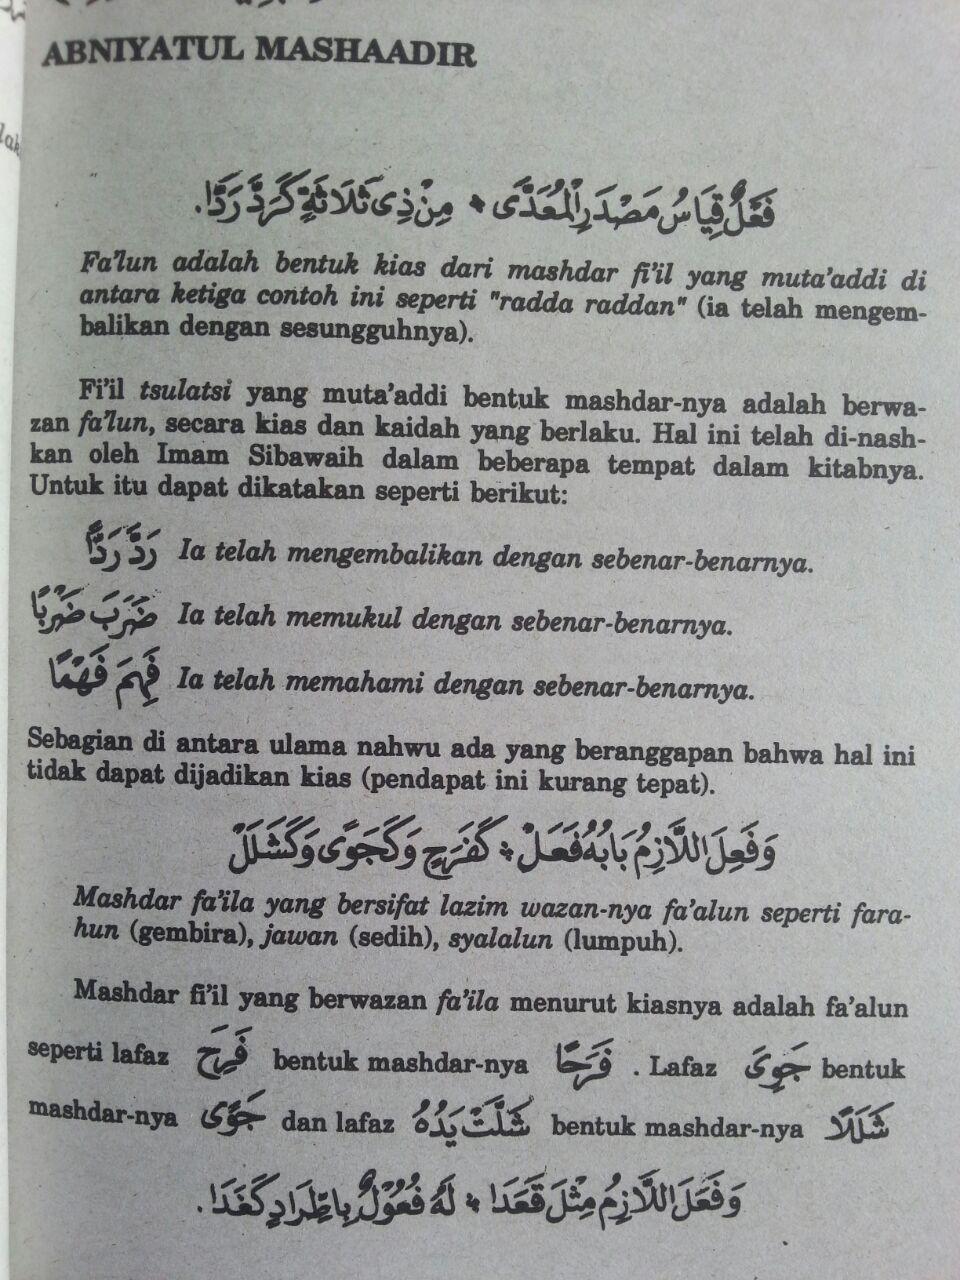 ABNIYATUL MASHAADIR
فَعْلٌ قِيَاسُ مَصْدَرِ الْمُعَدَّى * مِنْ ذِى ثَلَاثَةٍ كَرَدَّ رَدًّا.
Fa'lun adalah bentuk kias dari mashdar fi'il yang muta'addi di
antara ketiga contoh ini seperti "radda raddan" (ia telah mengem-
balikan dengan sesungguhnya).
Fi'il tsulatsi yang muta'addi bentuk mashdar-nya adalah berwa-
zan fa'lun, secara kias dan kaidah yang berlaku. Hal ini telah di-nash-
kan oleh Imam Sibawaih dalam beberapa tempat dalam kitabnya.
Untuk itu dapat dikatakan seperti berikut:
رَدَّ رَدًّا Ia telah mengembalikan dengan sebenar-benarnya.
ضَرَبَ ضَرْبًا Ia telah memukul dengan sebenar-benarnya.
فَهِمَ فَهْمًا Ia telah memahami dengan sebenar-benarnya.
Sebagian di antara ulama nahwu ada yang beranggapan bahwa hal ini
tidak dapat dijadikan kias (pendapat ini kurang tepat).
وَفَعِلَ اللَّازِمُ بَابُهُ فَعَلْ * كَفَرَحٍ وَكَجَوًى وَكَشَلَلْ
Mashdar fa'ila yang bersifat lazim wazan-nya fa'alun seperti fara-
hun (gembira), jawan (sedih), syalalun (lumpuh).
Mashdar fi'il yang berwazan fa'ila menurut kiasnya adalah fa'alun
seperti lafaz فَرِحَ bentuk mashdar-nya فَرَحًا . Lafaz جَوِىَ bentuk
mashdar-nya جَوًى dan lafaz شَلَّتْ يَدُهُ bentuk mashdar-nya شَلَلًا
وَفَعَلَ اللَّازِمُ مِثْلَ قَعَدَا * لَهُ فُعُوْلٌ بِاطِّرَادٍ كَغَدَا.